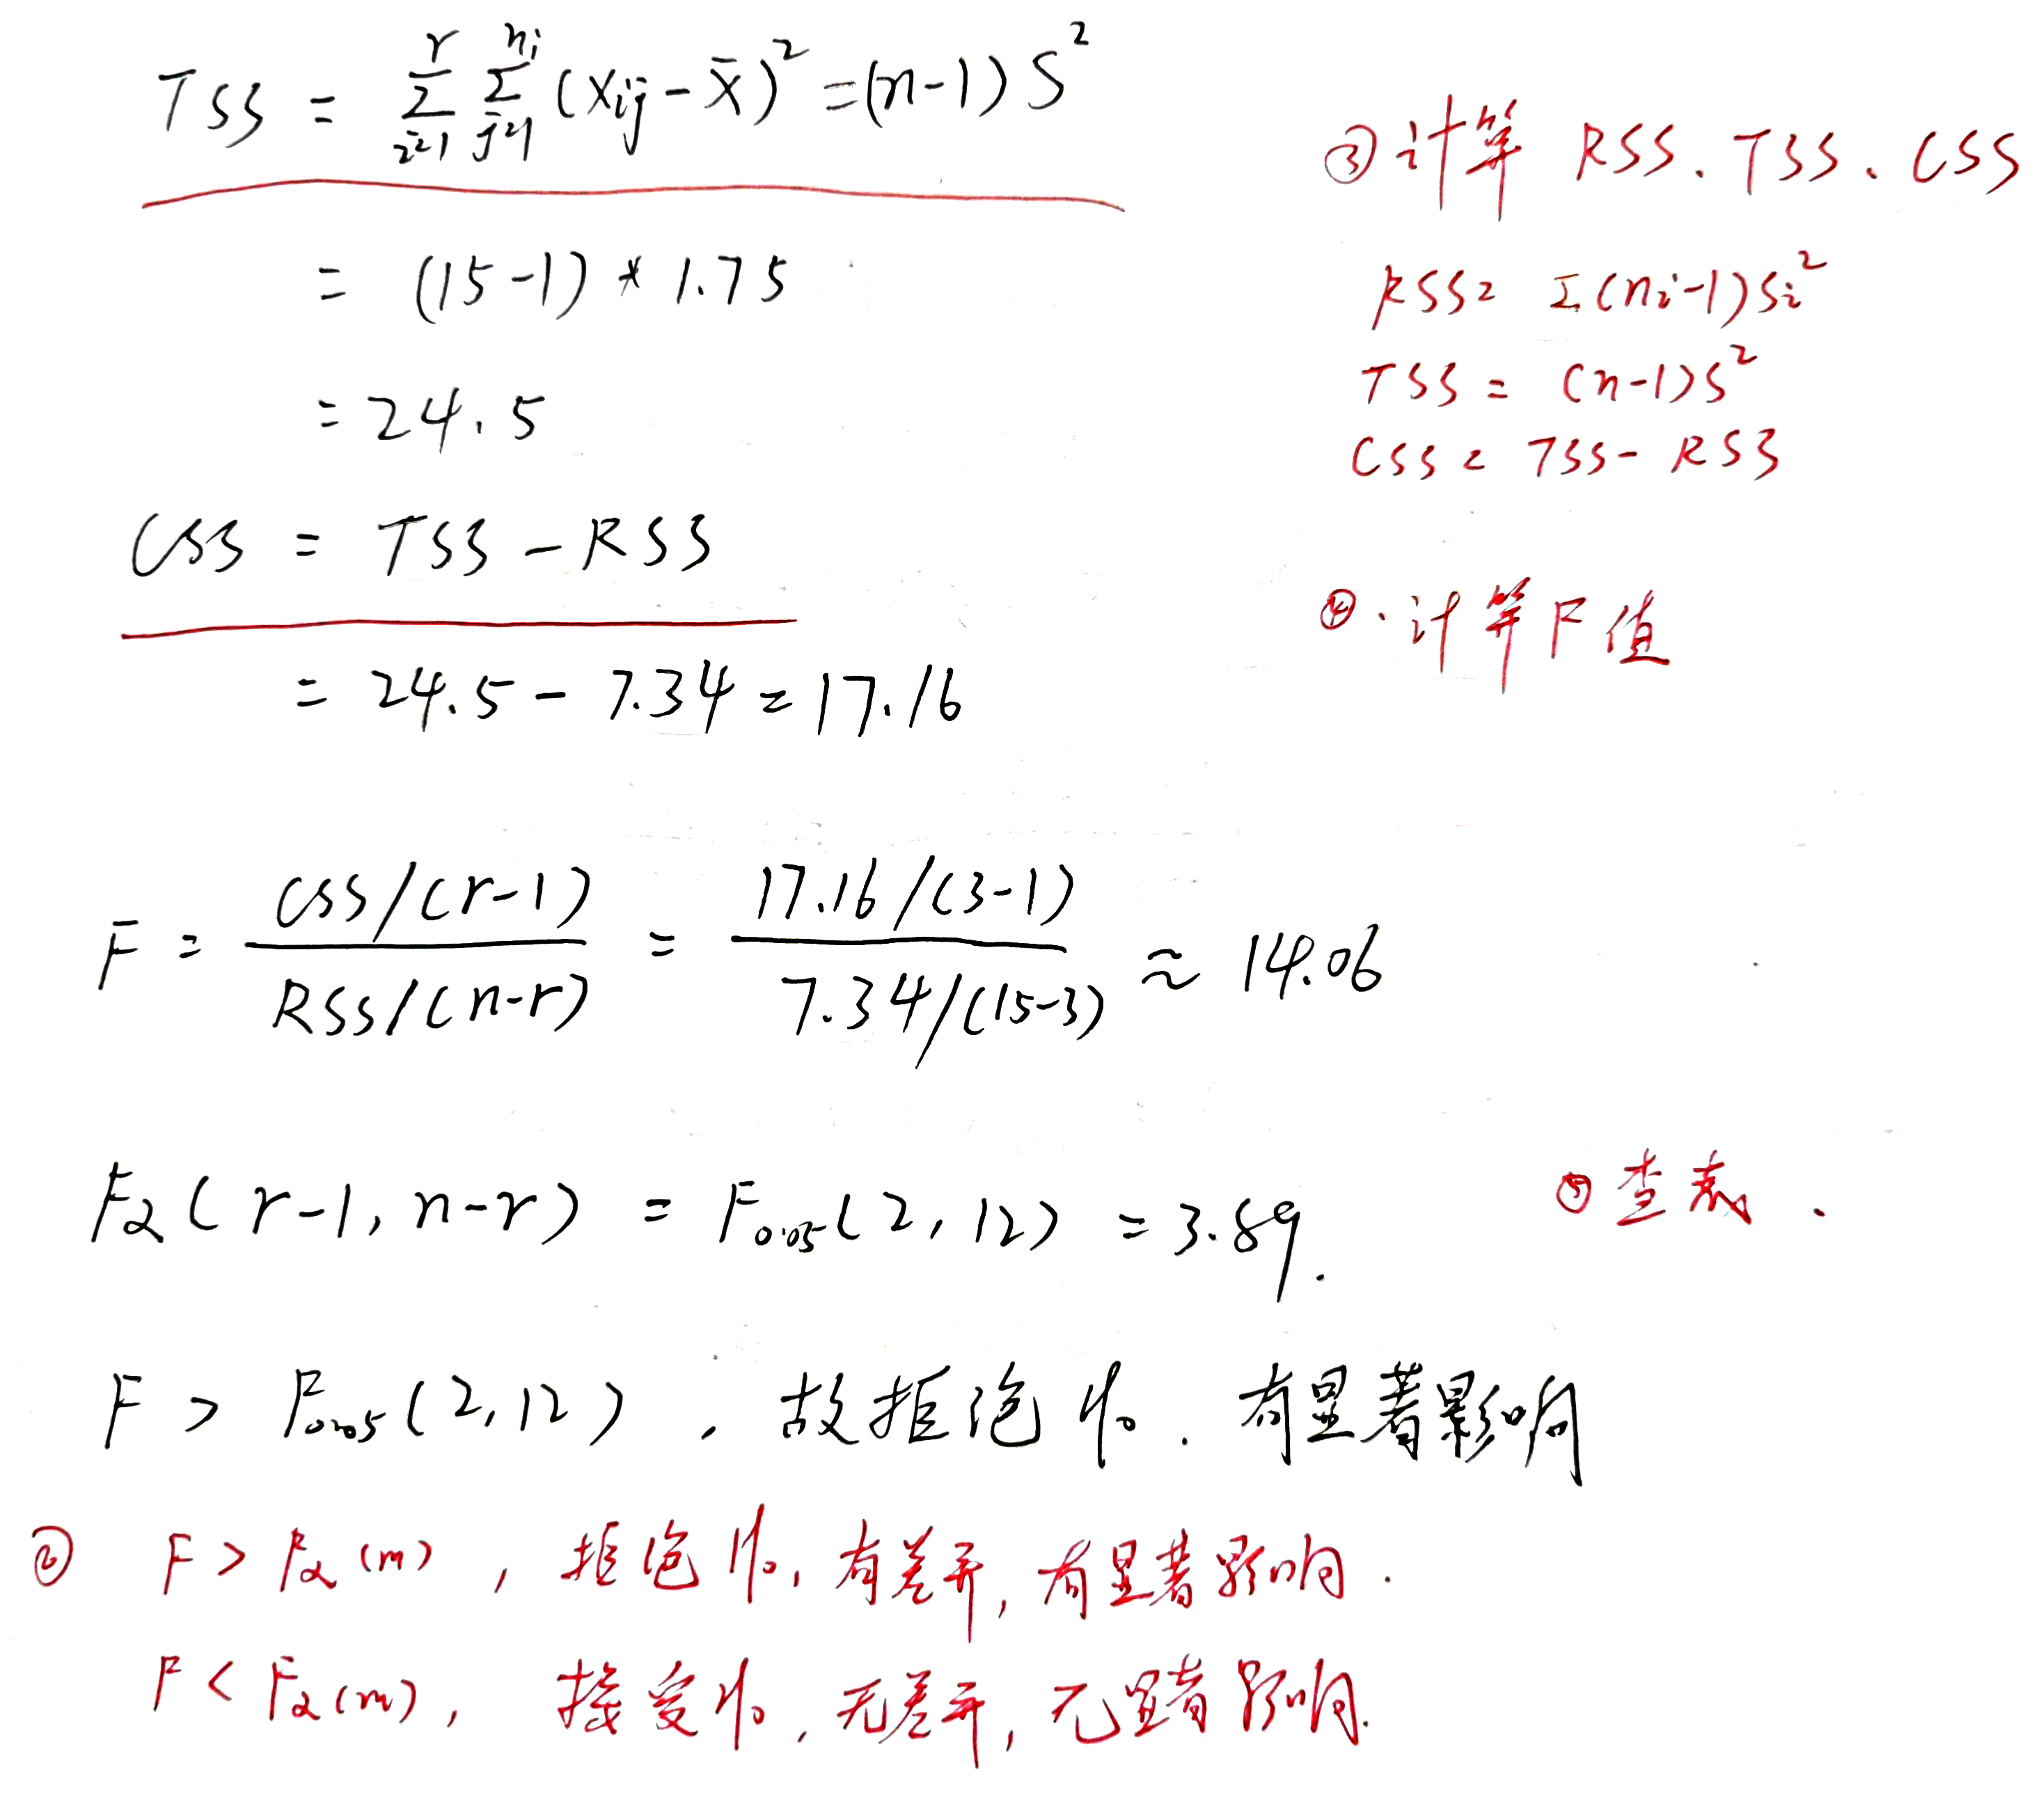 TSS = \sum_{i=1}^{r} \sum_{j=1}^{n_i} (x_{ij} - \bar{x})^2 = (n-1) S^2
③ 计算 RSS. TSS. CSS
= (15-1) * 1.75
RSS = Σ(n_i-1)S_i^2
= 24.5
TSS = (n-1)S^2
CSS = TSS - RSS
CSS = TSS - RSS
④. 计算F值
= 24.5 - 7.34 = 17.16
F = \frac{CSS/(r-1)}{RSS/(n-r)} = \frac{17.16/(3-1)}{7.34/(15-3)} ≈ 14.06
F_α(r-1, n-r) = F_{0.05}(2, 12) = 3.89.
⑤ 查表.
F > F_{0.05}(2, 12), 故拒绝 H_0. 有显著影响
⑥ F > F_α(m), 拒绝 H_0, 有差异, 有显著影响.
F < F_α(m), 接受 H_0, 无差异, 无显著影响.